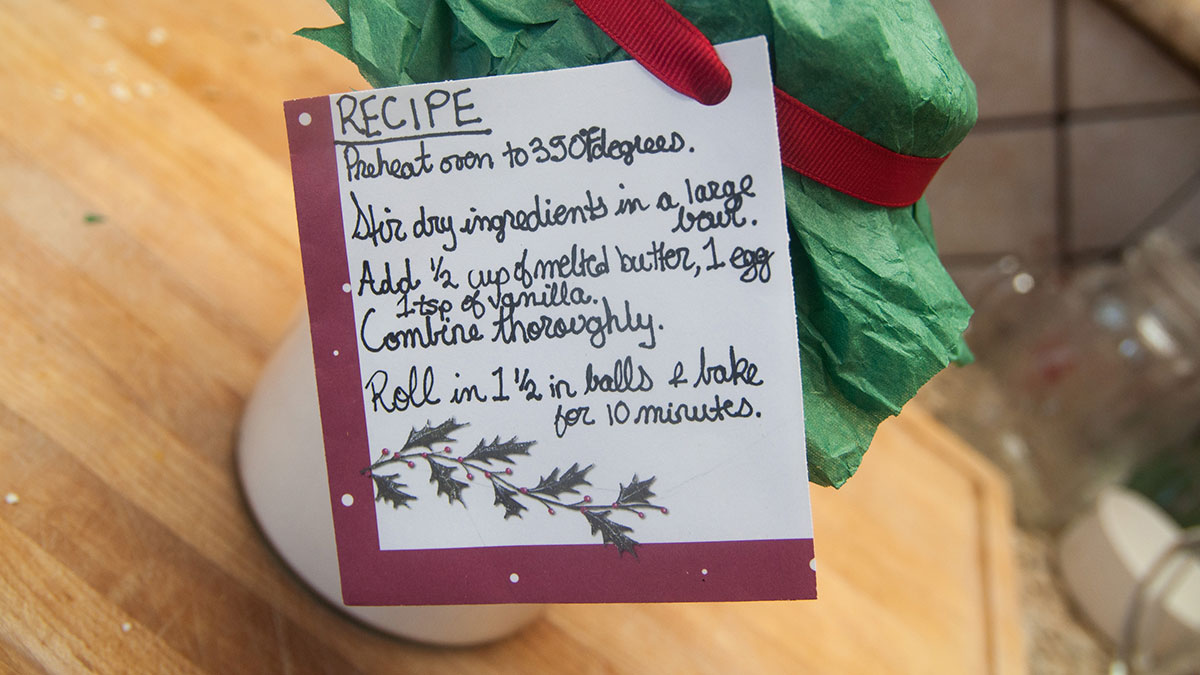 RECIPE
Preheat oven to 350°F degrees.
Stir dry ingredients in a large
bowl.
Add 1/2 cup of melted butter, 1 egg
1 tsp of vanilla.
Combine thoroughly.
Roll in 1 1/2 in balls & bake
for 10 minutes.